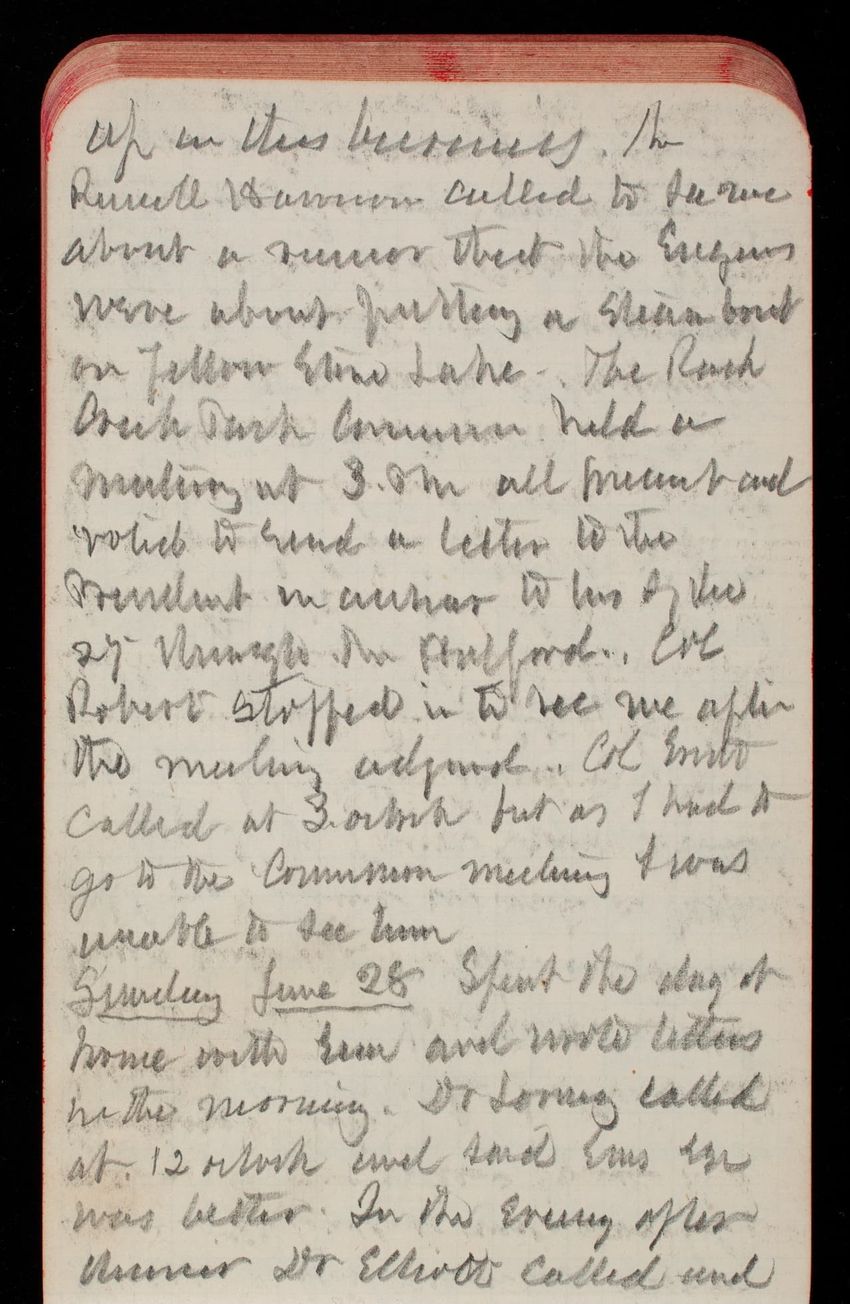 up in this business. Mr
Russell Harrison called to see me
about a rumor that the Engrs
were about putting a steam boat
on Yellow Stone Lake. The Rock
Creek Park Commission held a
meeting at 3. P.M. all present and
voted to send a letter to the
President in answer to his of the
27 through Mr Halford. Col
Robert stopped in to see me after
the meeting adjourned. Col Ernst
called at 3. oclock but as I had to
go to the Commission meeting I was
unable to see him
Sunday June 28 Spent the day at
home with Em and wrote letters
in the morning. Dr Loring called
at. 12 oclock and said Ems eye
was better. In the evening after
dinner Dr Elliott called and